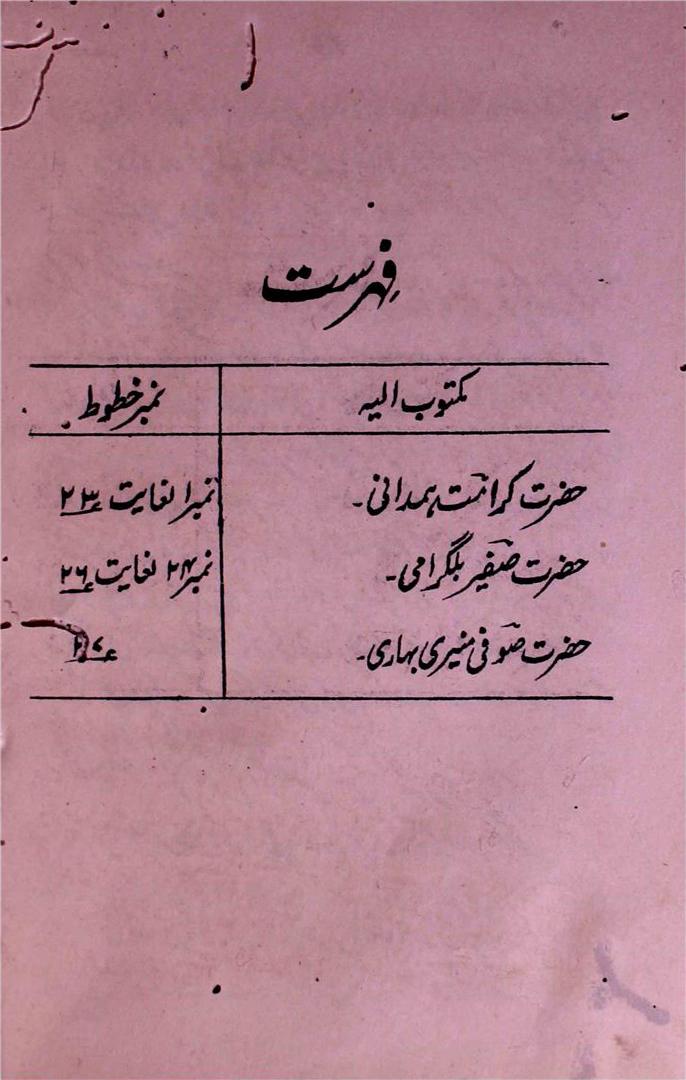 فہرست
مکتوب الیہ نمبر خطوط
حضرت کرامت ہمدانی۔ نمبر۱ لغایت ۲۳
حضرت صفیر بلگرامی۔ نمبر۲۴ لغایت ۲۶
حضرت صوفی منیری بہاری۔ ۲۷